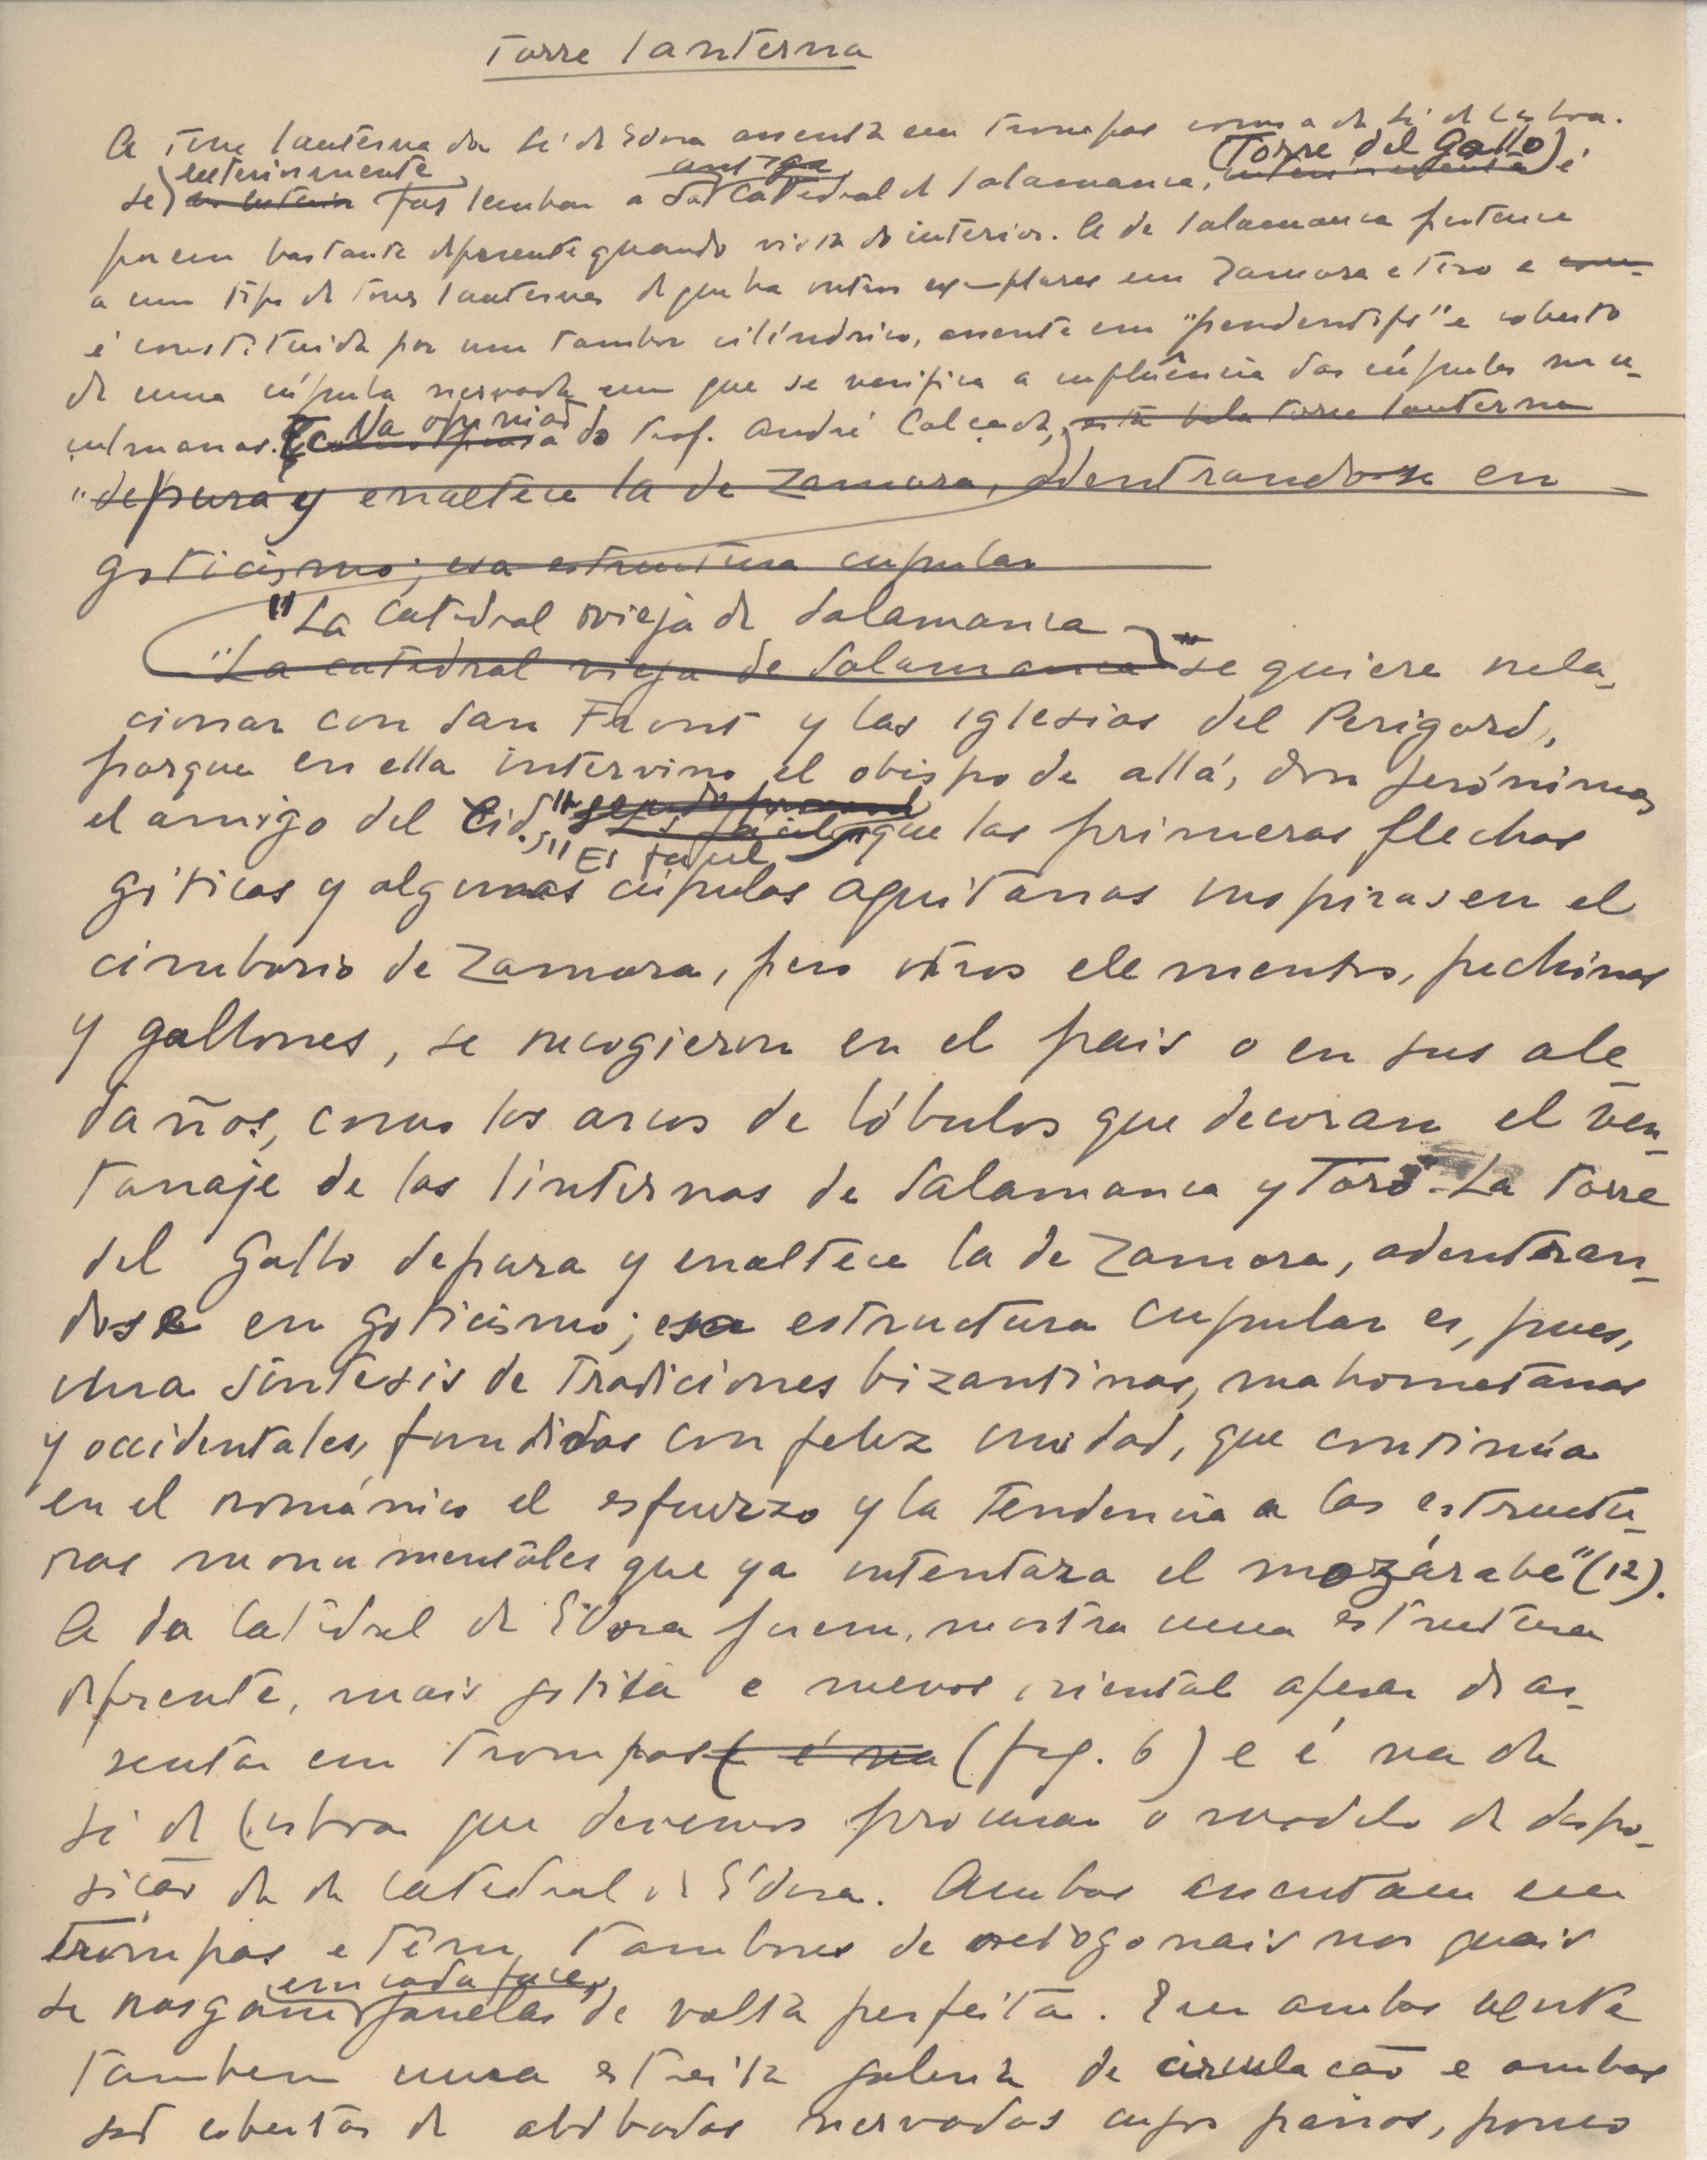 Torre lanterna
A torre lanterna da Sé de Évora assenta em trompas como a da Sé de Lisboa.
Se exteriormente nos lembra a da antiga Catedral de Salamanca, (Torre del Gallo) é
porem bastante diferente quando vista do interior. A de Salamanca pertence
a um tipo de torres lanternas de que ha outros exemplares em Zamora e Toro e
é constituida por um tambor cilíndrico, assente em "pendentifs" e coberto
de uma cúpula nervada em que se verifica a influência das cúpulas mu-
sulmanas. Na opinião do Prof. André Calzada, esta bela torre lanterna
"depura y enaltece la de Zamora, adentrandose en
goticismo; esa estructura cupular
"La Catedral vieja de Salamanca
"La catedral vieja de Salamanca se quiere rela-
cionar con San Front y las iglesias del Perigord,
porque en ella intervino el obispo de allá, don Jerónimo,
el amigo del Cid." "Es facil que las primeras flechas
góticas y algunas cúpulas aquitanas inspirasen el
cimborio de Zamora, pero otros elementos, pechinas
y gallones, se recogieron en el pais o en sus ale-
daños, como los arcos de lóbulos que decoran el ven-
tanaje de las linternas de Salamanca y Toro". La torre
del Gallo depura y enaltece la de Zamora, adentran-
dose en goticismo; esa estructura cupular es, pues,
una síntesis de tradiciones bizantinas, mahometanas
y occidentales, fundidas con feliz unidad, que continúa
en el románico el esfuerzo y la tendencia a las estructu-
ras monumentales que ya intentara el mozárabe" (12).
A da Catedral de Évora porem, mostra uma estrutura
diferente, mais gotica e menos oriental apesar de as-
sentar em trompas (fig. 6) e é na da
Sé de Lisboa que devemos procurar o modelo de dispo-
sição da da Catedral de Évora. Ambas assentam em
trompas e têm tambores octogonais nos quais
se rasgam em cada face, janelas de volta perfeita. Em ambas existe
tambem uma estreita galeria de circulação e ambas
são cobertas de abóbadas nervadas cujos panos, pouco